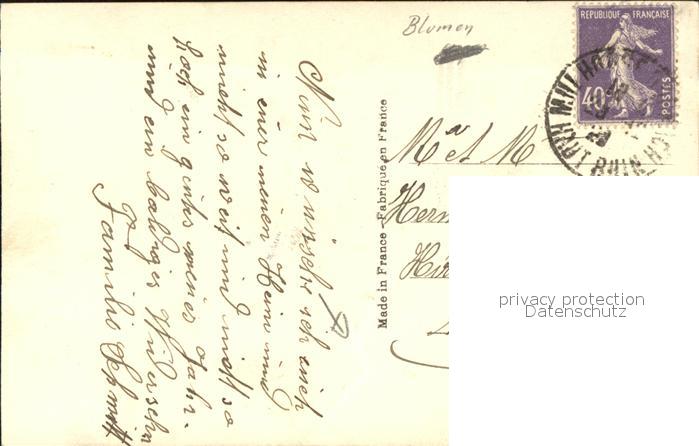 Blumen
REPUBLIQUE FRANÇAISE
40
POSTES
Made in France - Fabrique en France
Nun wünsche ich euch
in euer neuen Heim und
nicht so weit und nicht so
hoch ein gutes neues Jahr.
und ein baldiges Wiedersehn
Familie Schmitt
M et M
privacy protection
Datenschutz